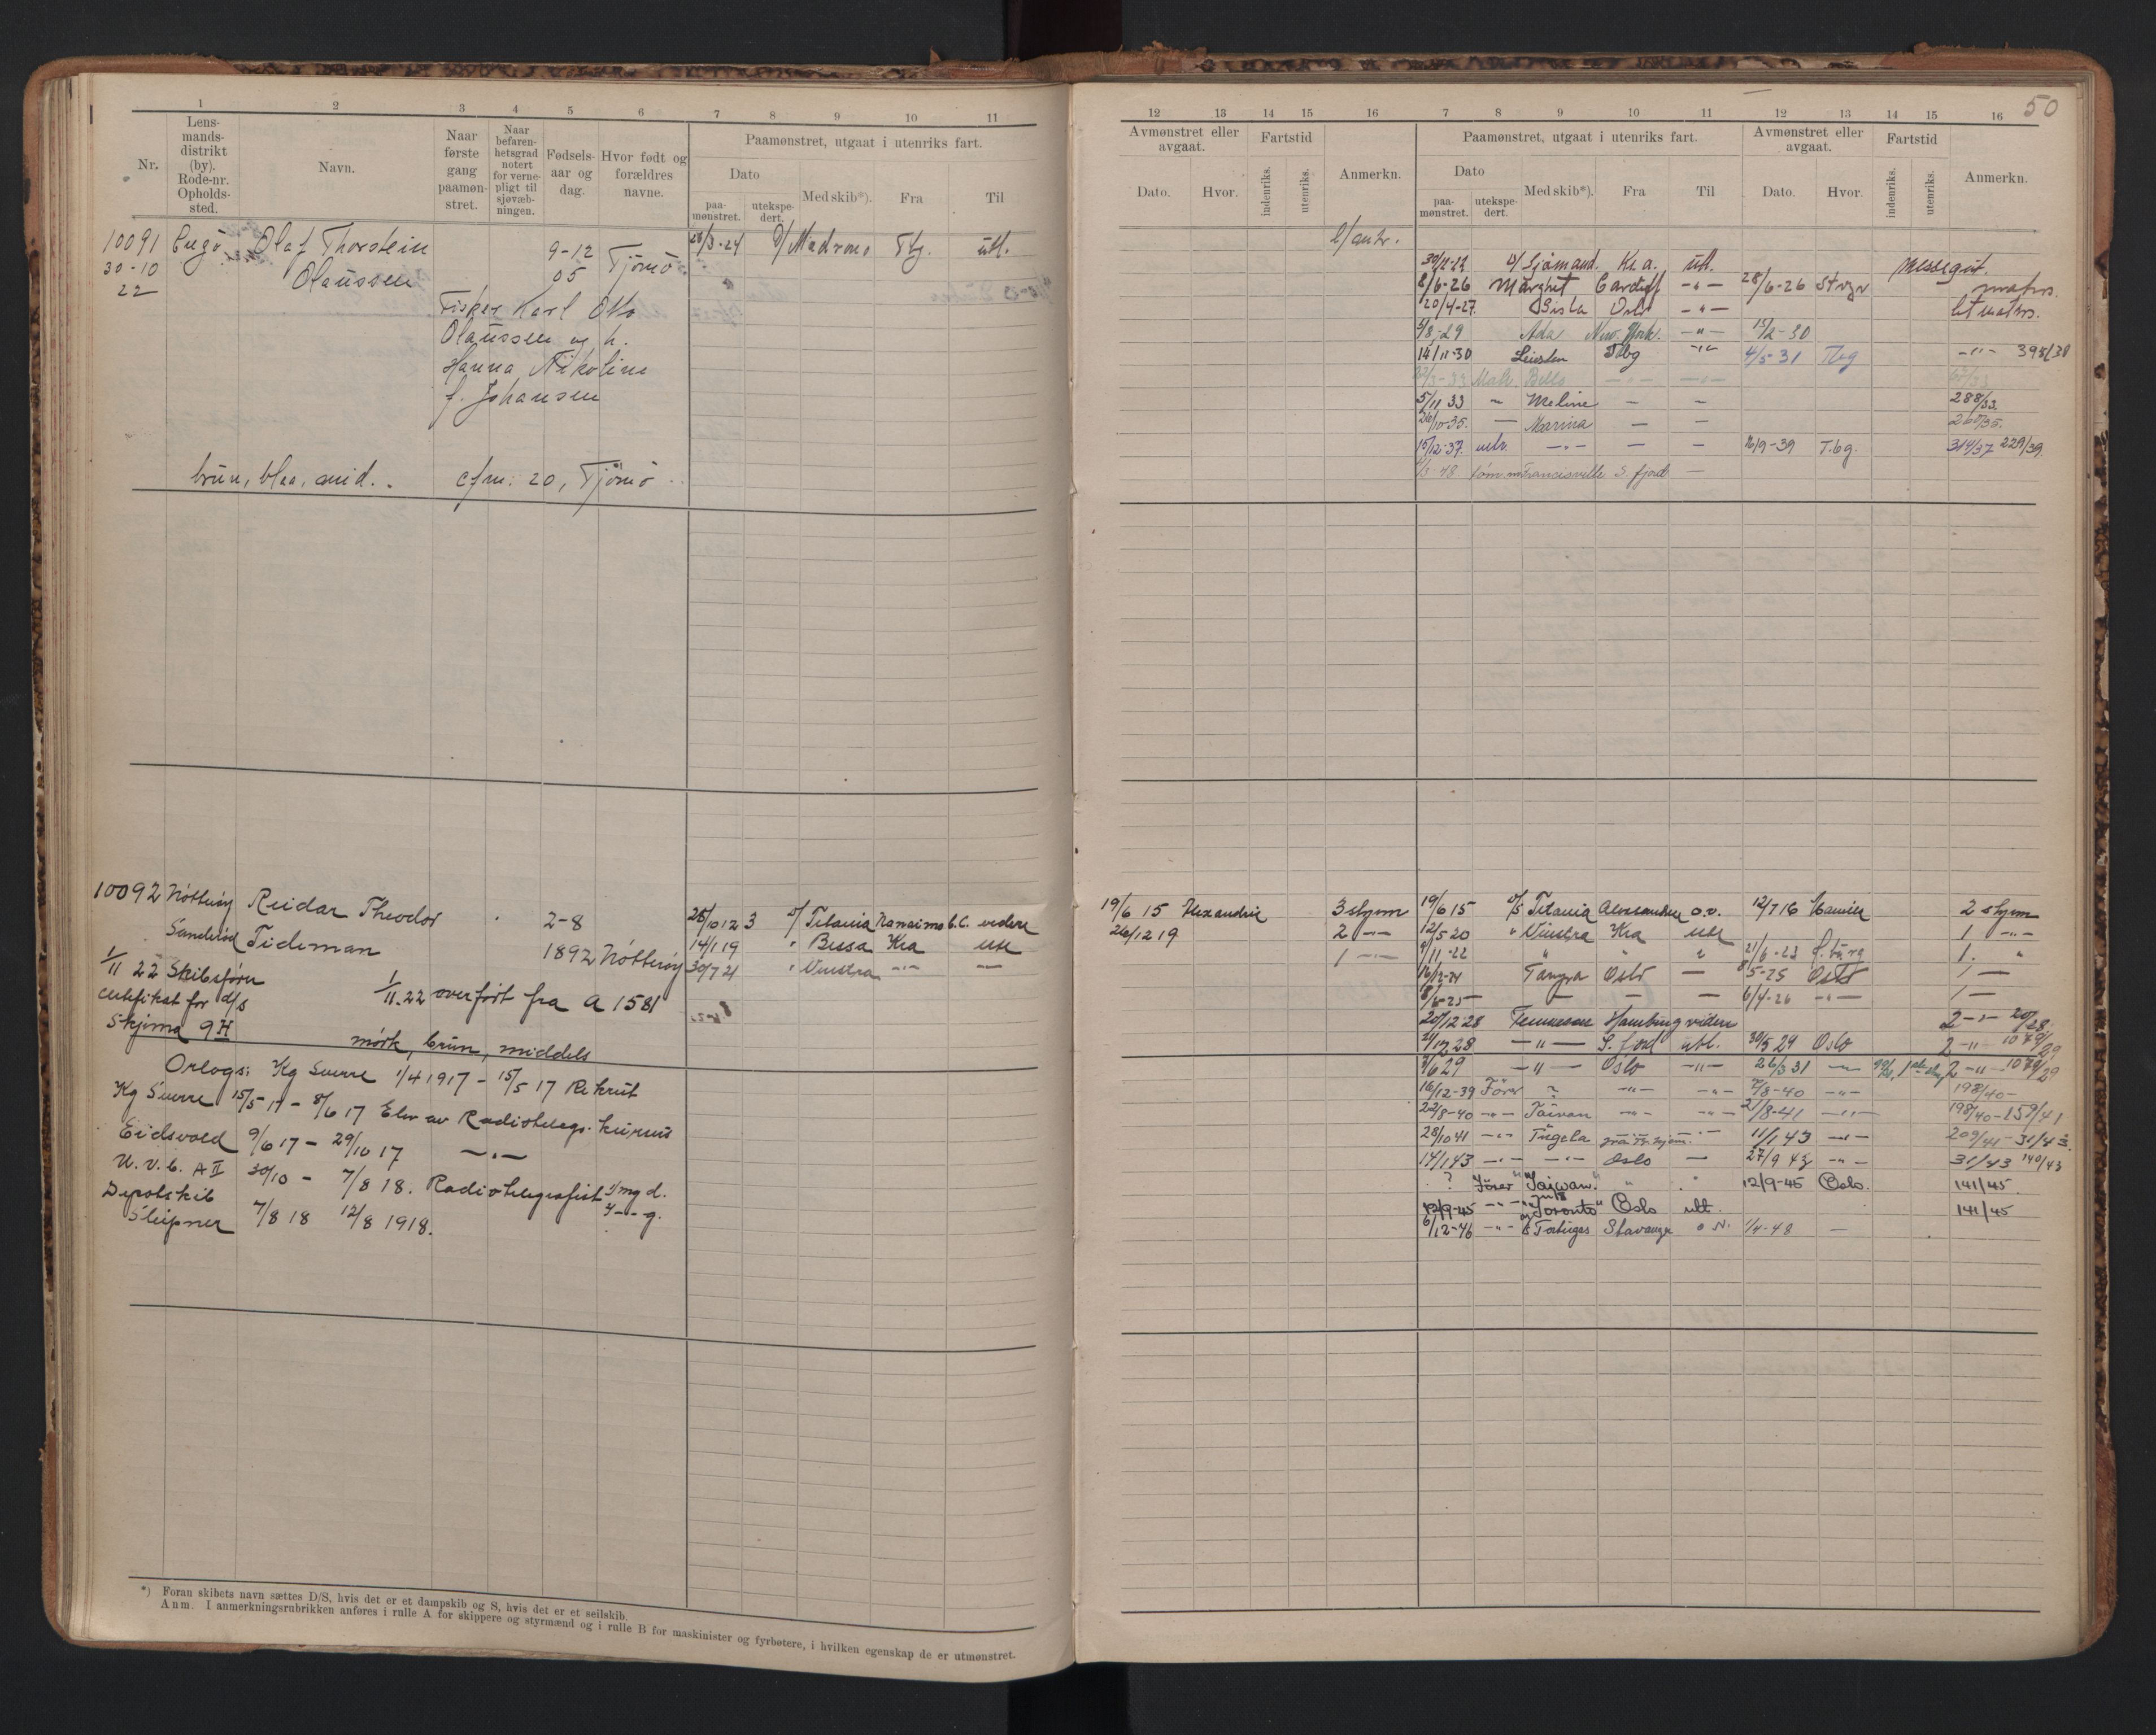 50
1 2 3 4 5 6 7 8 9 10 11
Nr.
Lensmandsdistrikt (by). Rode-nr. Opholdssted.
Navn.
Naar første gang paamønstret.
Naar befarenhetsgrad notert for vernepligt til sjøvæbningen.
Fødselsaar og dag.
Hvor født og forældres navne.
Paamønstret, utgaat i utenriks fart.
Dato
paamønstret.
utekspedert.
Med skib*).
Fra
Til
12 13 14 15 16 7 8 9 10 11 12 13 14 15 16
Avmønstret eller avgaat.
Dato.
Hvor.
Fartstid
indenriks.
utenriks.
Anmerkn.
Paamønstret, utgaat i utenriks fart.
Dato
paamønstret.
utekspedert.
Med skib*).
Fra
Til
Avmønstret eller avgaat.
Dato.
Hvor.
Fartstid
indenriks.
utenriks.
Anmerkn.
10091 Olaf Thorstein 9-12 Tjömö 28/3-24 D/ Tbg. utl.
30-10 Olaussen 05
22
Fisker Karl Otto
Olaussen og h.
Hanna Nikoline
f. Johansen
brun, blaa, mid. cfm: 20, Tjömö
Sjömand. Kr.a. utl. Messegut.
8/6-26 Margrit Cardiff -"- 28/6-26 matrs.
20/4-27. Oslo -"- matrs.
5/8-29 Ada New York. -"- 15/2-30
14/11-30 Tbg -"- 4/5-31 Tbg -"- 395/30
Bello
5/11 33 Meline 288/33.
26/10-35. Marina 260/35.
15/12-37. -"- 16/9-39 T.bg. 314/37 229/39.
Francisville S fjord
10092 Nötteröy Reidar Theodor 2-8 25/10 12 3 D/ Titania Nanaimo B.C. videre
Sanderöd Tideman 1892 Nötteröy 14/1 19 " Bessa Kra utl
30/7 21 " Vinstra -"- —
1/11 22 Skibsförer
certifikat for d/s 1/11.22 overfört fra A 1581
Skjema 9H
mörk, brun, middels
Orlogs: Kg Sverre 1/4 1917 - 15/5 17 Rekrut
Kg Sverre 15/5 17 - 8/6 17 Elev av Radiotelegr. kursus
Eidsvold 9/6 17 - 29/10 17 -"-
U.v.b. A II 30/10 - 7/8 18. Radiotelegrafist
Depotskib
Sleipner 7/8 18 12/8 1918.
19/6 15 Alexandria 3 stym 19/6 15 D/S Titania Alexandria o.v. 12/7 16 Manilla 2 stym
26/12 19 2 -"- 12/5 20 " Vinstra Kra utl 1 -"-
1 -"- 4/11-22 " " " 21/6-23 1. "
16/12-24 Tanyra Oslo — 8/5-25 Oslo 1 —
8/5-25 — — — 6/4-26 -"- 1 —
20/12 28 Tennessee Hamburg videre 2 -"- 20/28.
-"- S. fjord utl. 30/5 29 Oslo 2 -"- 1079/29
3/6 29 -"- Oslo -"- 26/3 31 2 -"- 1079/29
16/12-39 Förer ? -"- -"- -"- 198/40-
22/8-40 -"- Taiwan -"- -"- 21/8-41 -"- 198/40-159/41
28/10 41 -"- Tugela 11/1 43 -"- 209/41-31/43.
14/1 43 -"- -"- Oslo — 27/9 43 -"- 31/43 140/43
? Förer "Taiwan" " " 12/9-45 Oslo. 141/45.
12/9-45 -"- "Toronto" Oslo utl. 141/45
6/12-46 -"- Tortugas Stavanger o N. 1/4-48 —
*) Foran skibets navn sættes D/S, hvis det er et dampskib og S, hvis det er et seilskib.
Anm. I anmerkningsrubrikken anføres i rulle A for skippere og styrmænd og i rulle B for maskinister og fyrbøtere, i hvilken egenskap de er utmønstret.